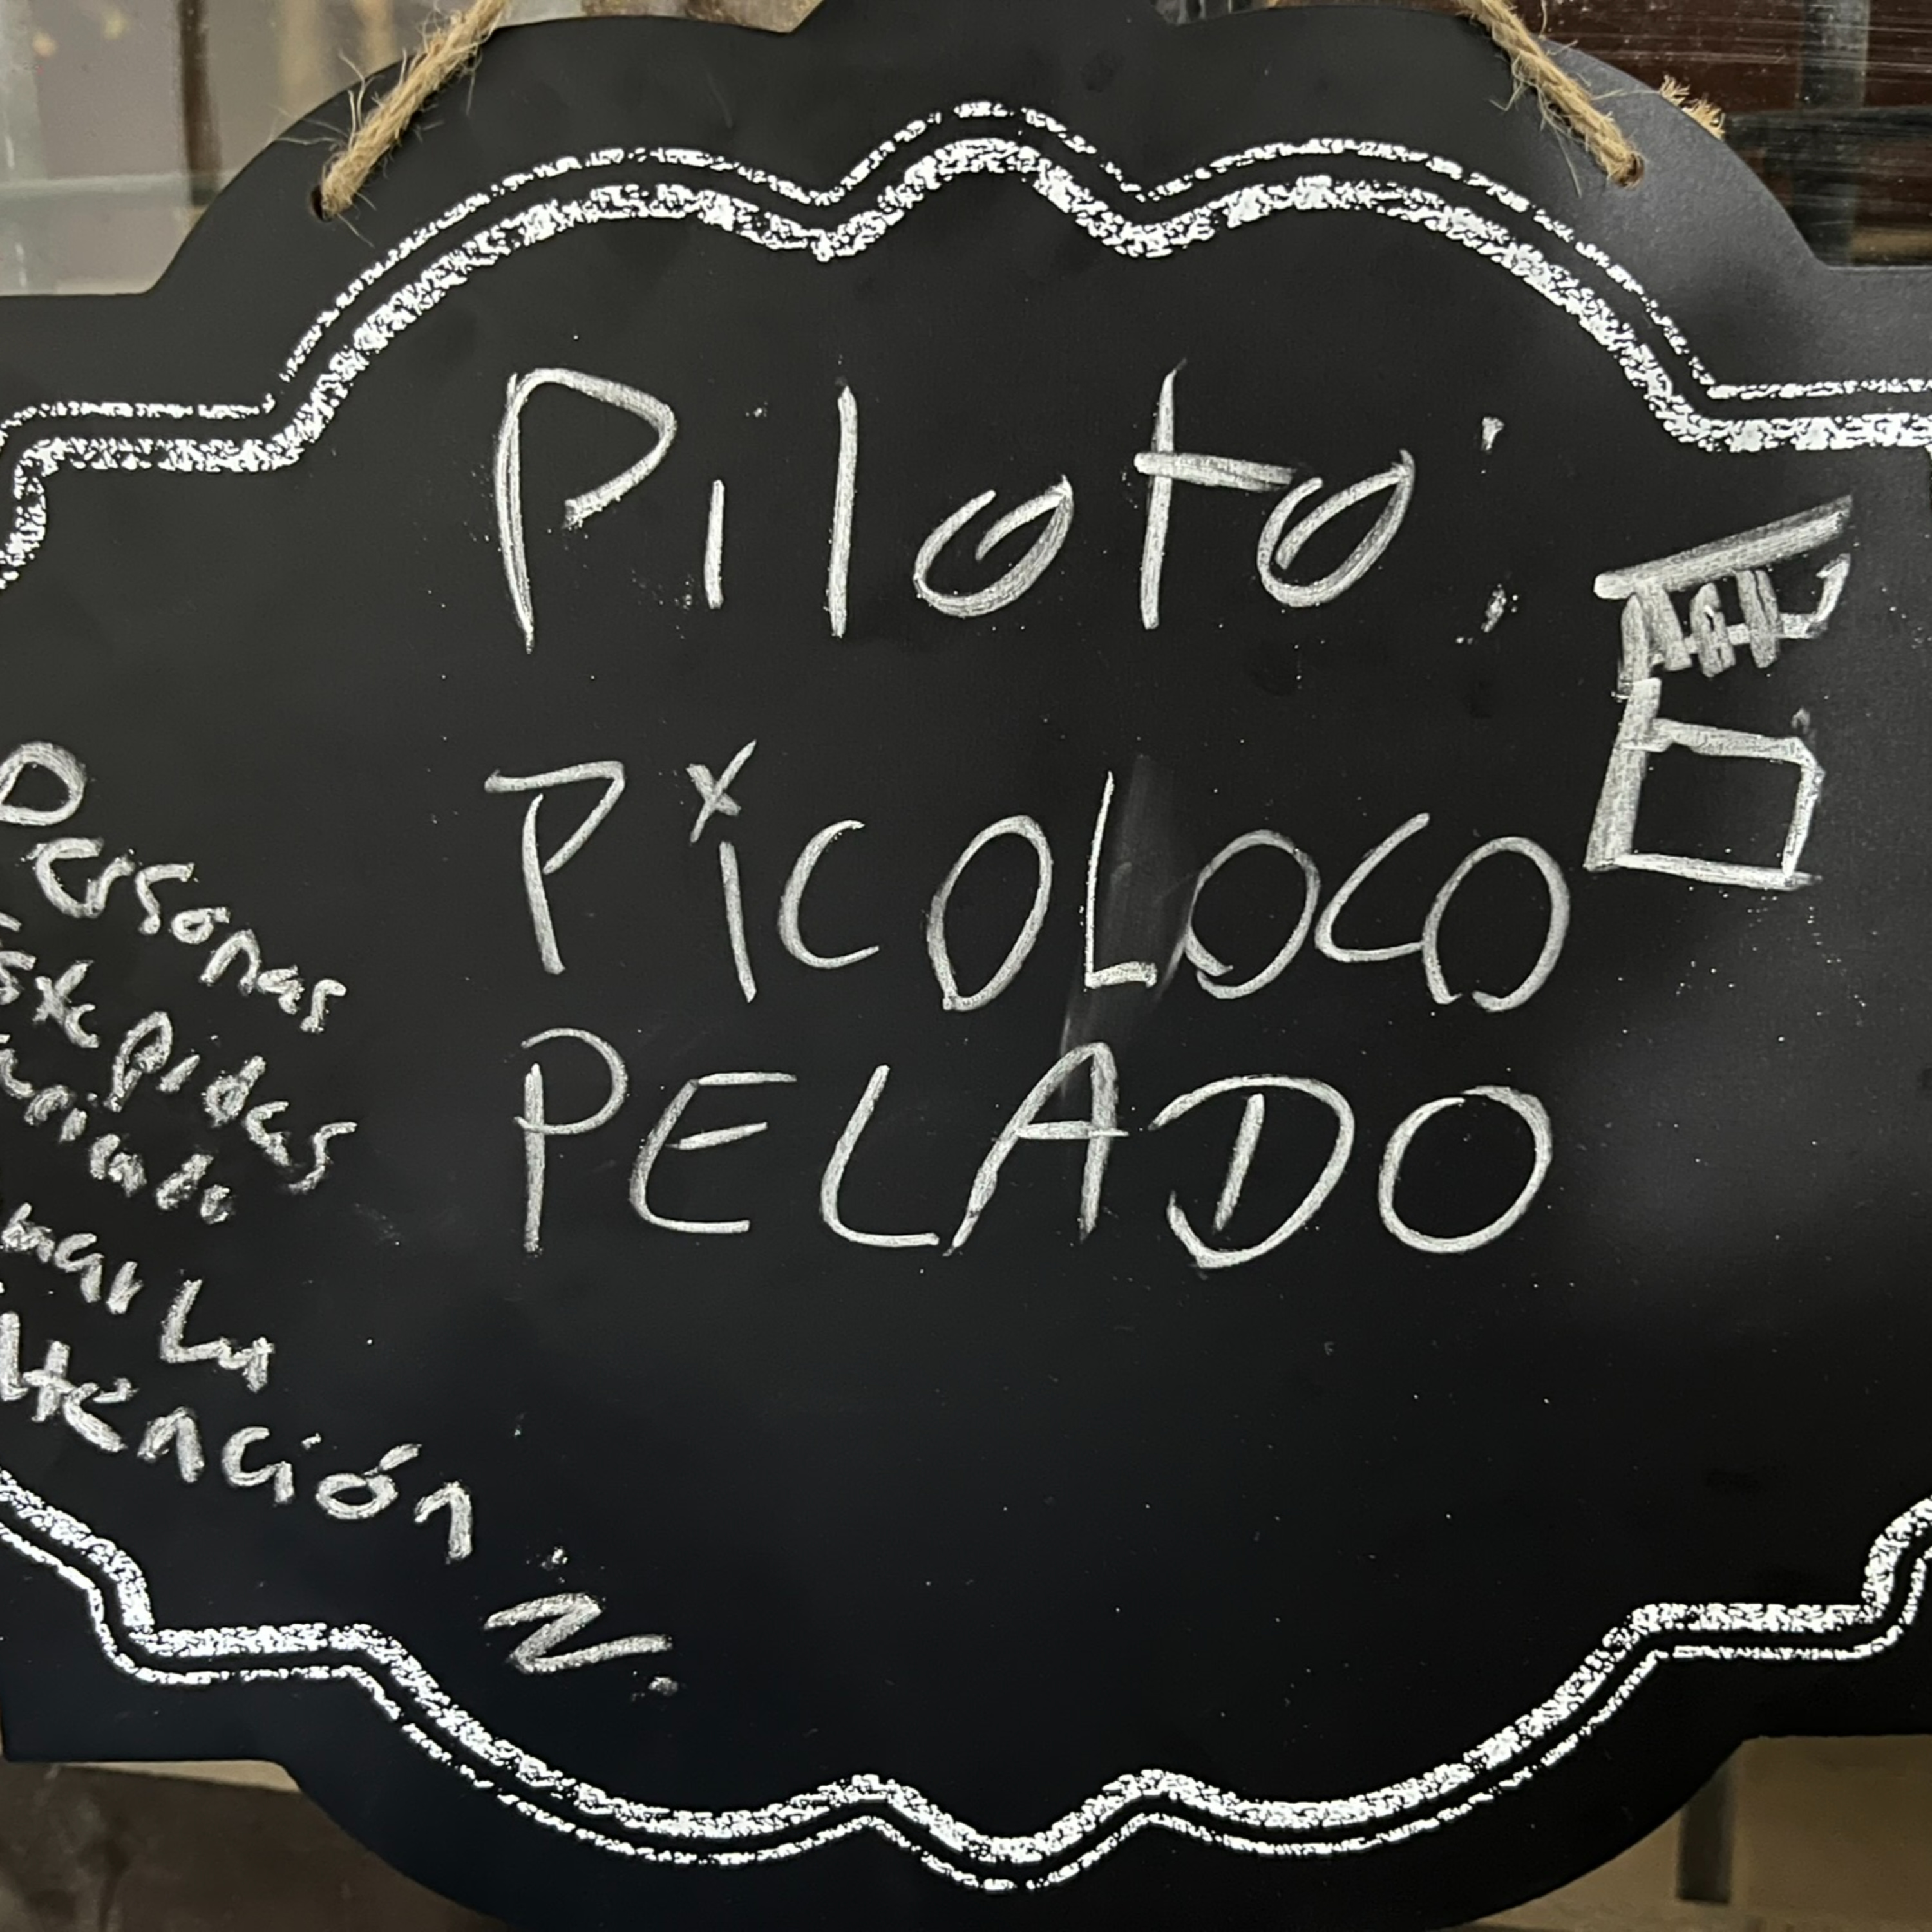 Piloto:
PiCOLOCO
PELADO
Personas
Pidas
mar La
Atención
N.